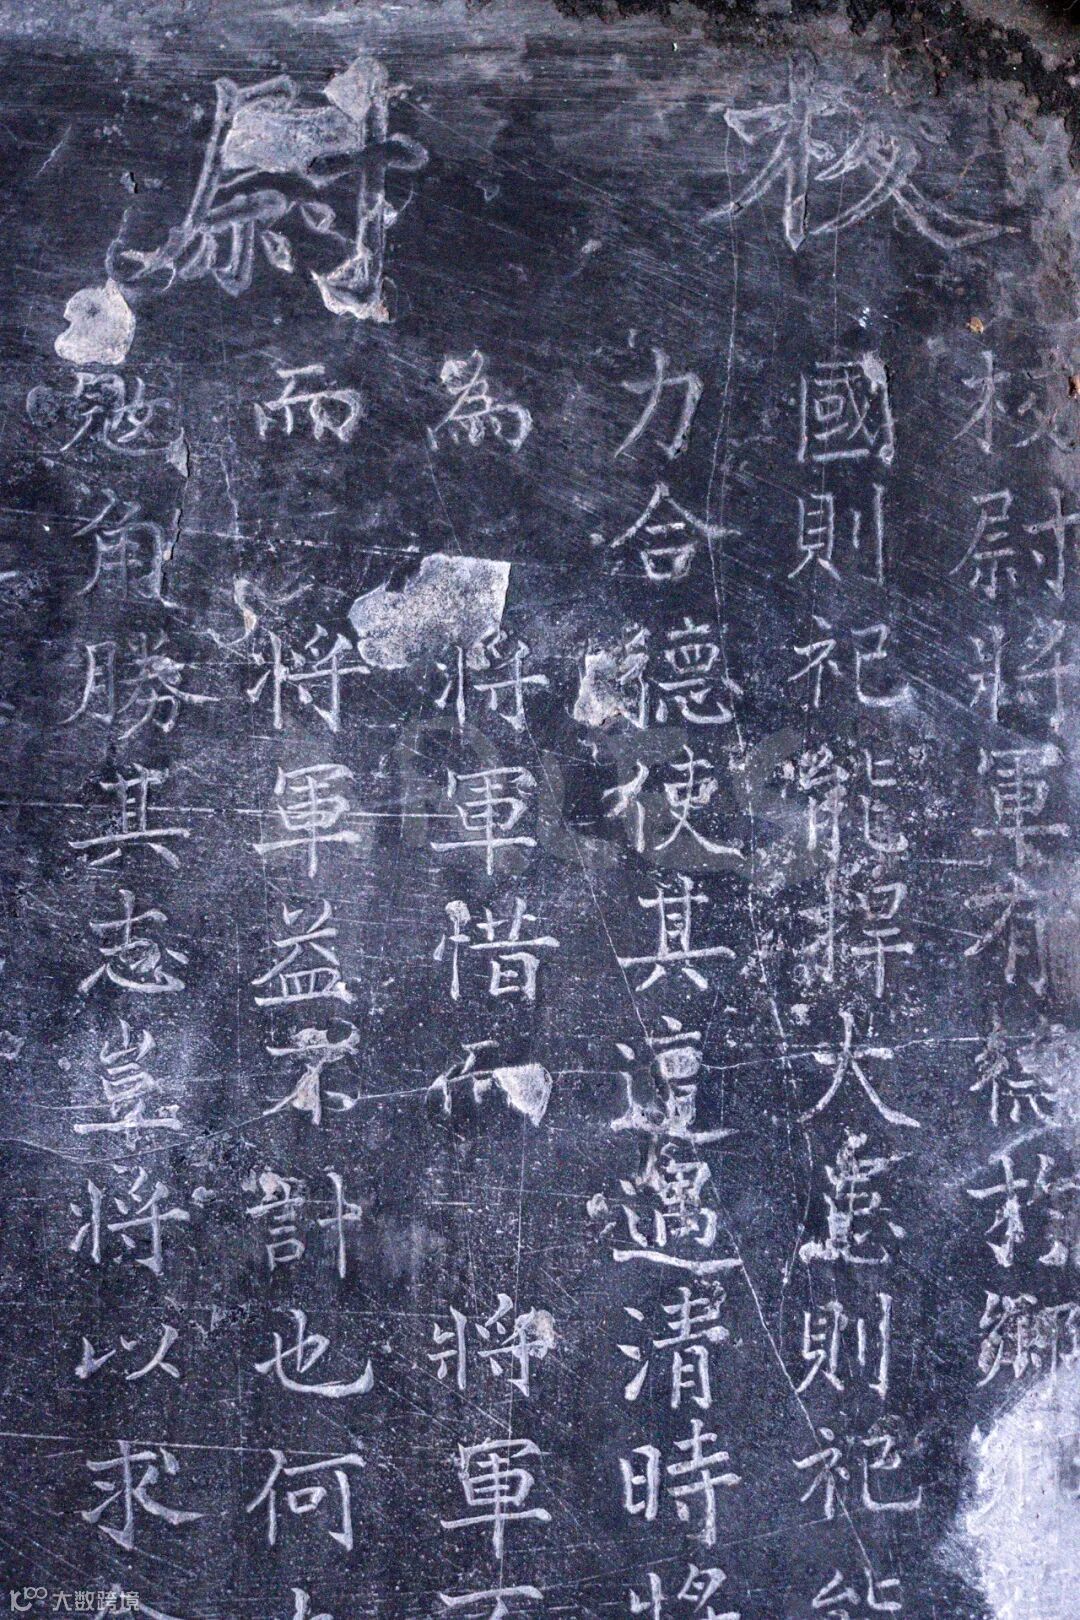 校尉
校尉將軍有德於鄉
國則祀能捍大患則祀能
力合德使其遭遇清時將
為將軍惜而將軍不
而將軍益不計也何
寇角勝其志豈將以求
大数跨境